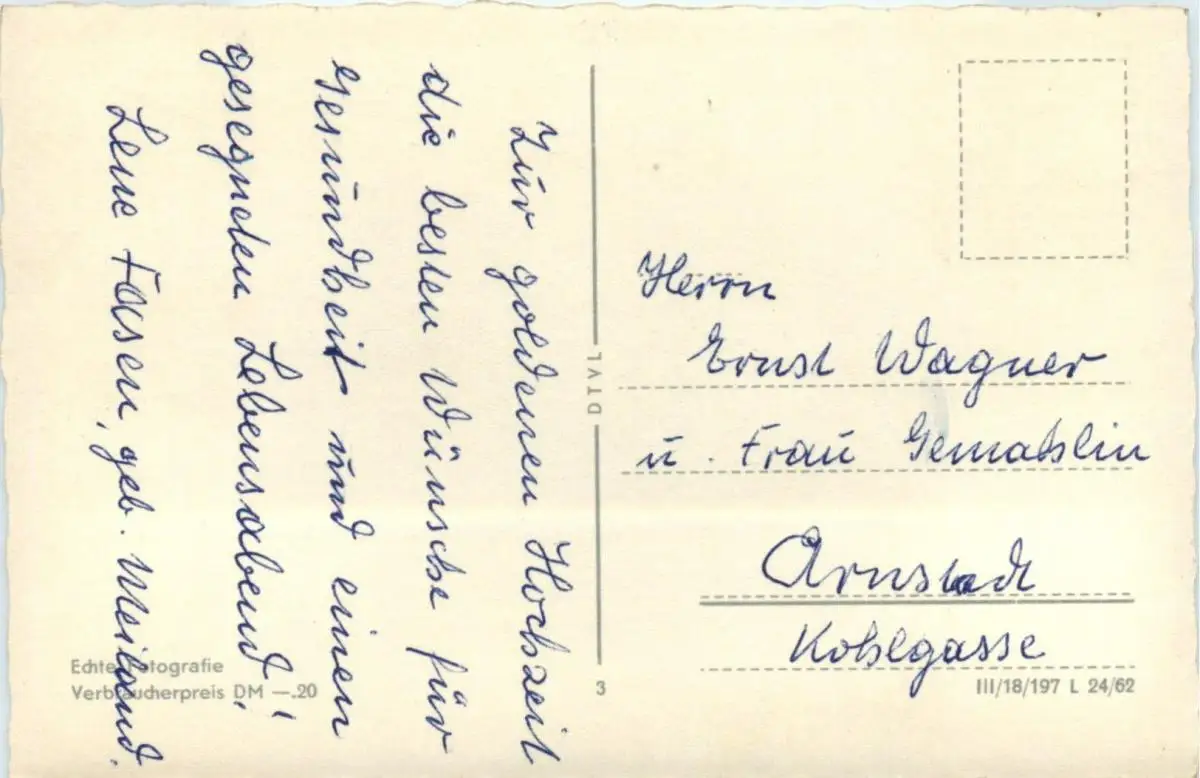 Zur goldenen Hochzeit
die besten Wünsche für
Gesundheit und einen
gesegneten Lebensabend!
Lene Fasen, geb. Meiland.
Herrn
Ernst Wagner
u. Frau Gemahlin
Arnstadt
Kohlgasse
DTVL
3
III/18/197 L 24/62
Echte Fotografie
Verbraucherpreis DM —.20